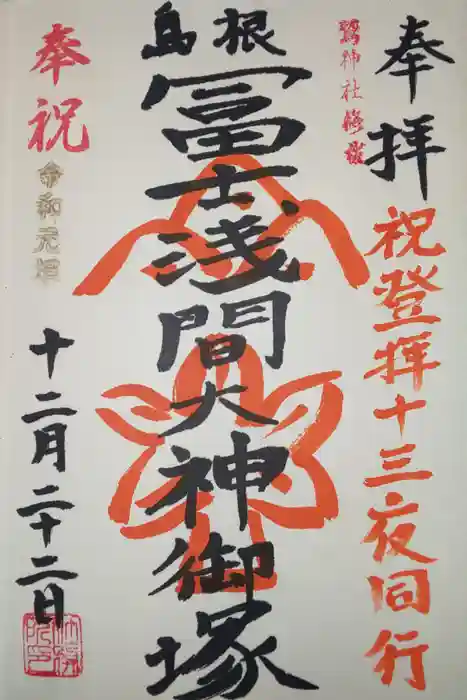 奉拝
祝登拝十三夜同行
鷲神社
島根
冨士浅間大神御塚
奉祝
令和元年
十二月二十二日